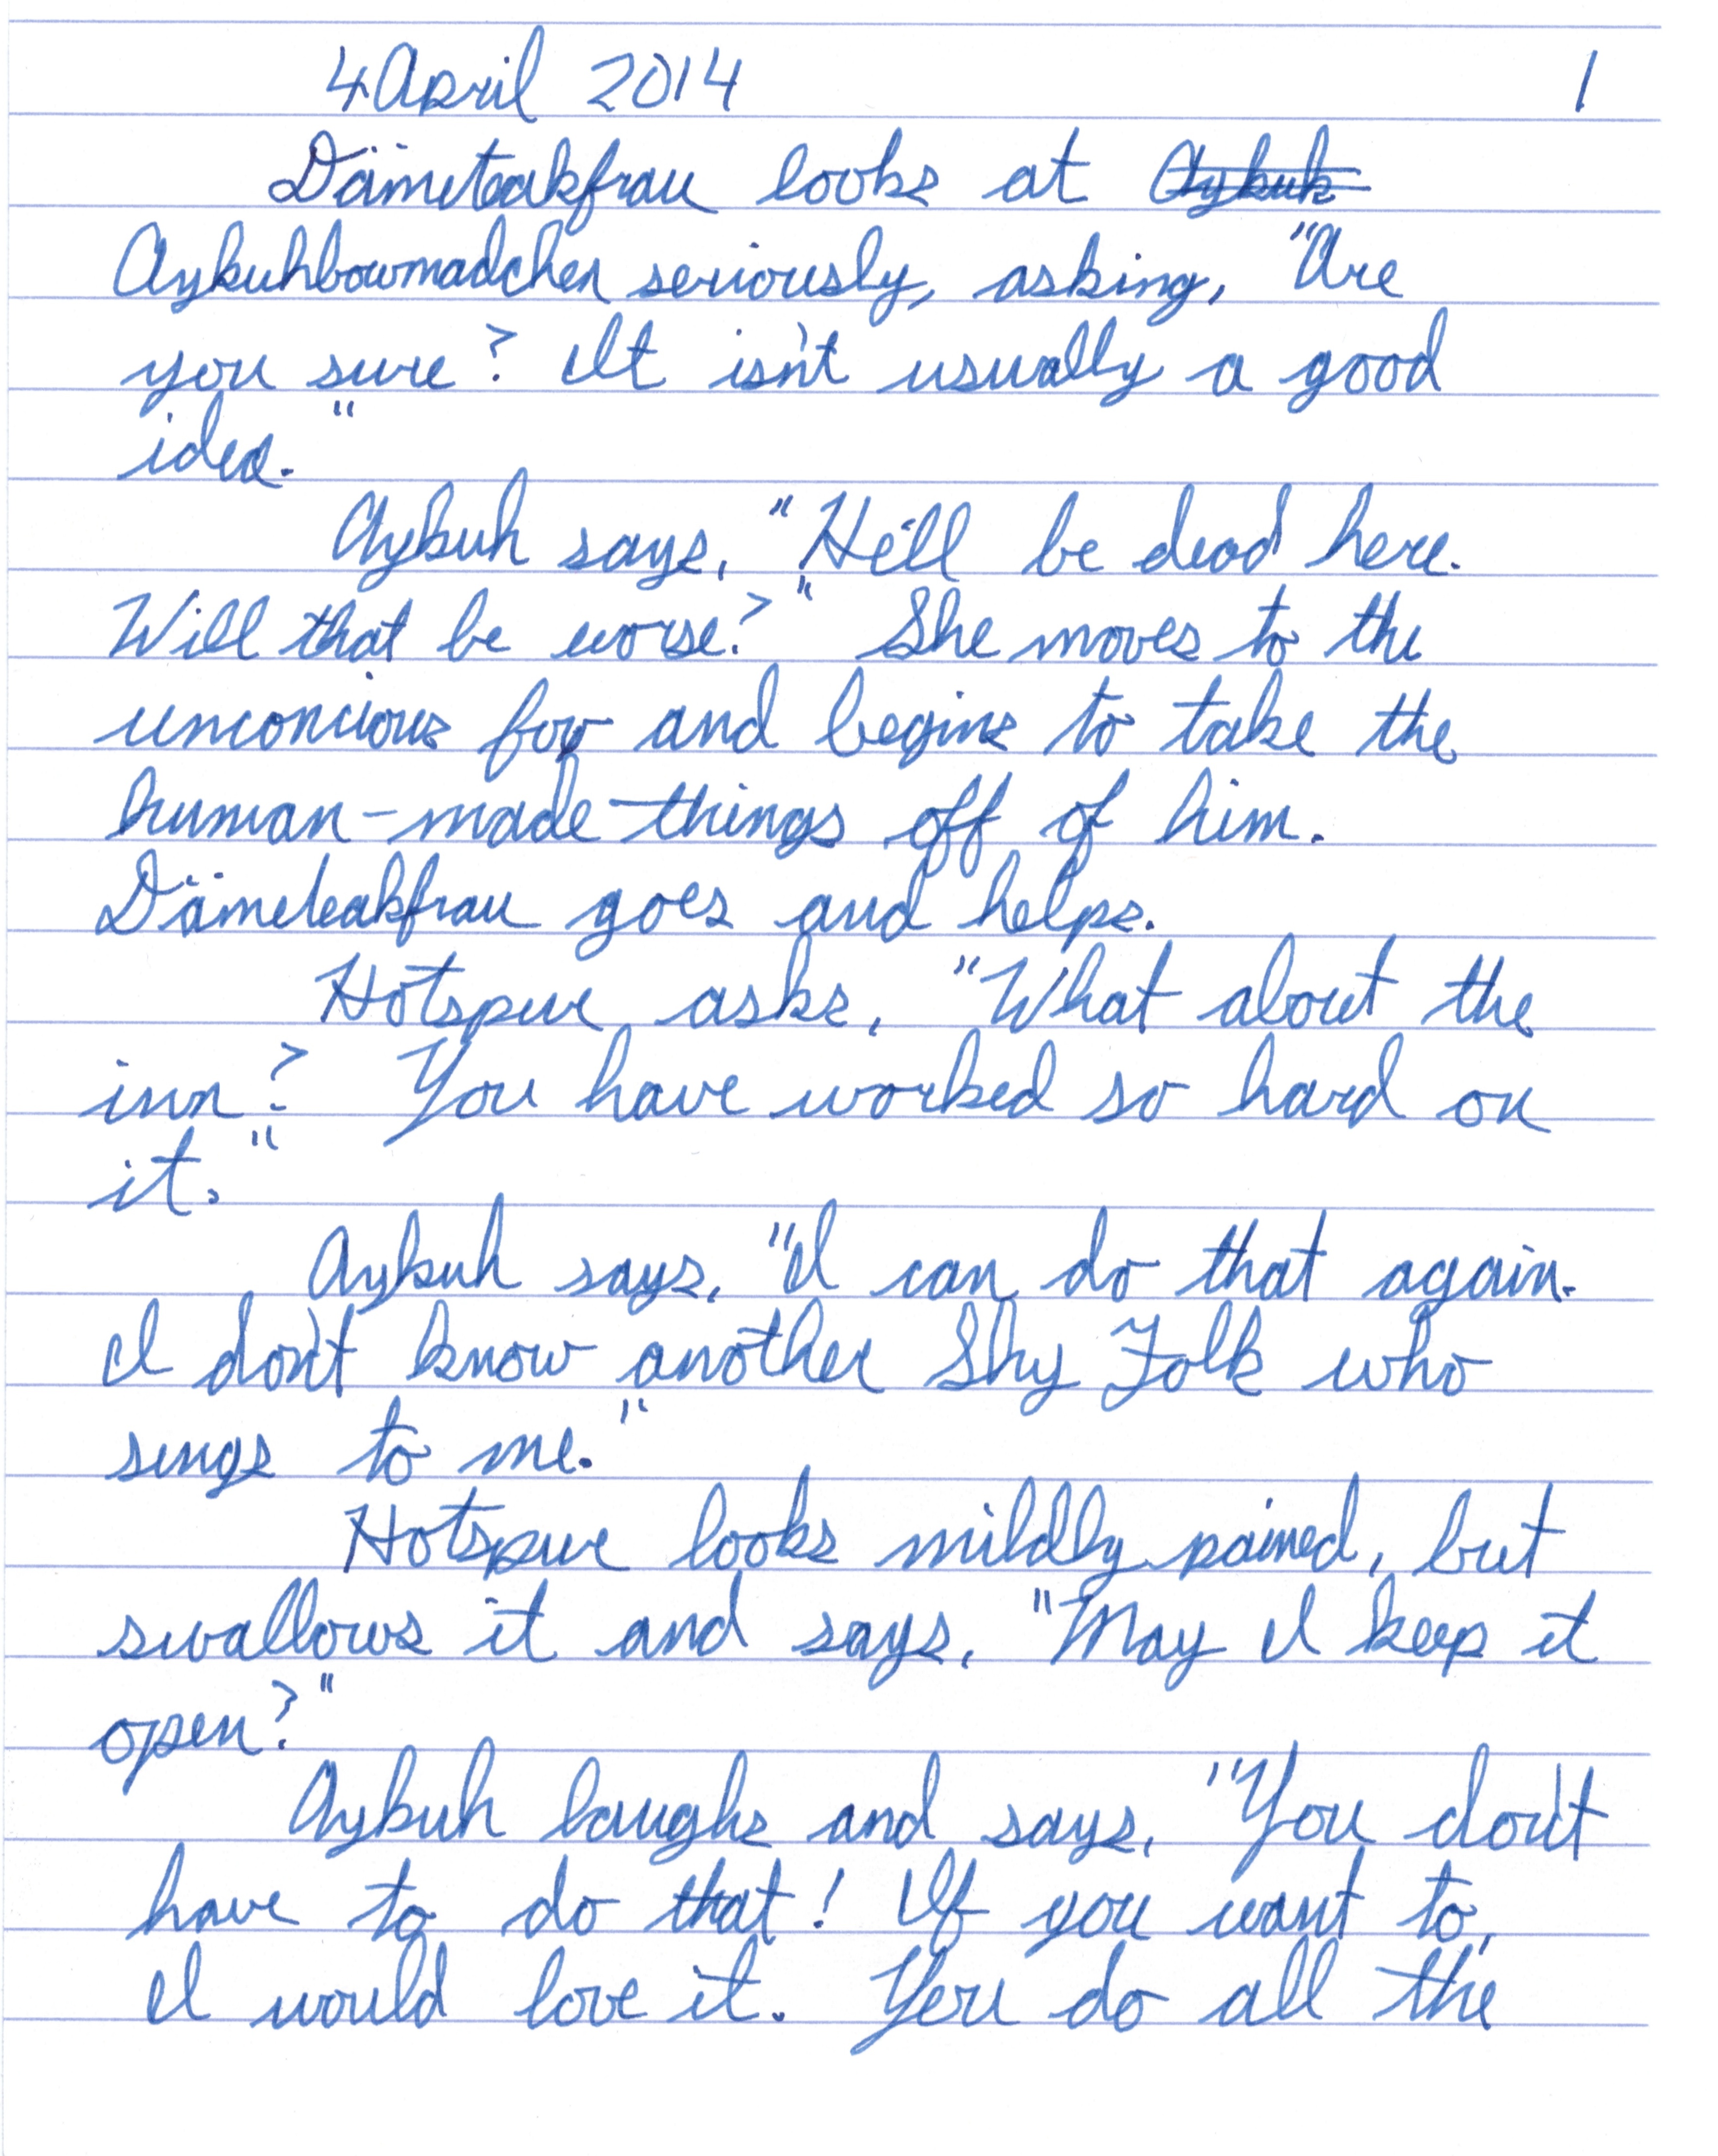 4 April 2014 1
Dämeteakfrau looks at Aykuh
Aykuhbowmadchen seriously, asking, "Are
you sure? It isn't usually a good
idea."
Aykuh says, "He'll be dead here.
Will that be worse?" She moves to the
unconcious foy and begins to take the
human-made things off of him.
Dämeteakfrau goes and helps.
Hotspur asks, "What about the
inn? You have worked so hard on
it."
Aykuh says, "I can do that again.
I don't know another Shy Folk who
sings to me."
Hotspur looks mildly pained, but
swallows it and says, "May I keep it
open?"
Aykuh laughs and says, "You don't
have to do that! If you want to,
I would love it. You do all the